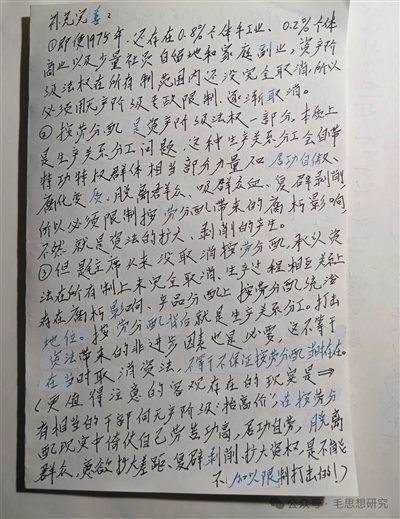 补充完善：
①即便1975年，还存在0.8%个体手工业、0.2%个体
商业以及少量社员自留地和家庭副业，资产阶
级法权在所有制范围内还没完全取消，所以
必须用无产阶级专政限制、逐渐取消。
②按劳分配是资产阶级法权一部分，本质上
是生产关系分工问题，这种生产关系分工会自带
特功特权群体相当部分力量如居功自傲、
腐化变质、脱离群众、吸群众血、复辟剥削
所以必须限制按劳分配带来的腐朽影响，
不然就是资法的扩大、剥削的产生。
③但是主席从来没取消按劳分配，承认资
法在所有制上未完全取消、生产过程相互关系上
存在腐朽影响、产品分配上按劳分配统治
地位。按劳分配背后就是生产关系分工。打击
资法带来的非进步因素也是必要，这不等于
在当时取消资法，不等于不保证按劳分配当时存在。
（更值得注意的客观存在的现实是⇒
有相当的干部向无产阶级“抬高价”，在按劳分
配现实中倚仗自己劳苦功高，居功自傲，脱离
群众，意欲扩大差距、复辟剥削扩大资权，是不能
不加以限制打击的！）
公众号·毛思想研究